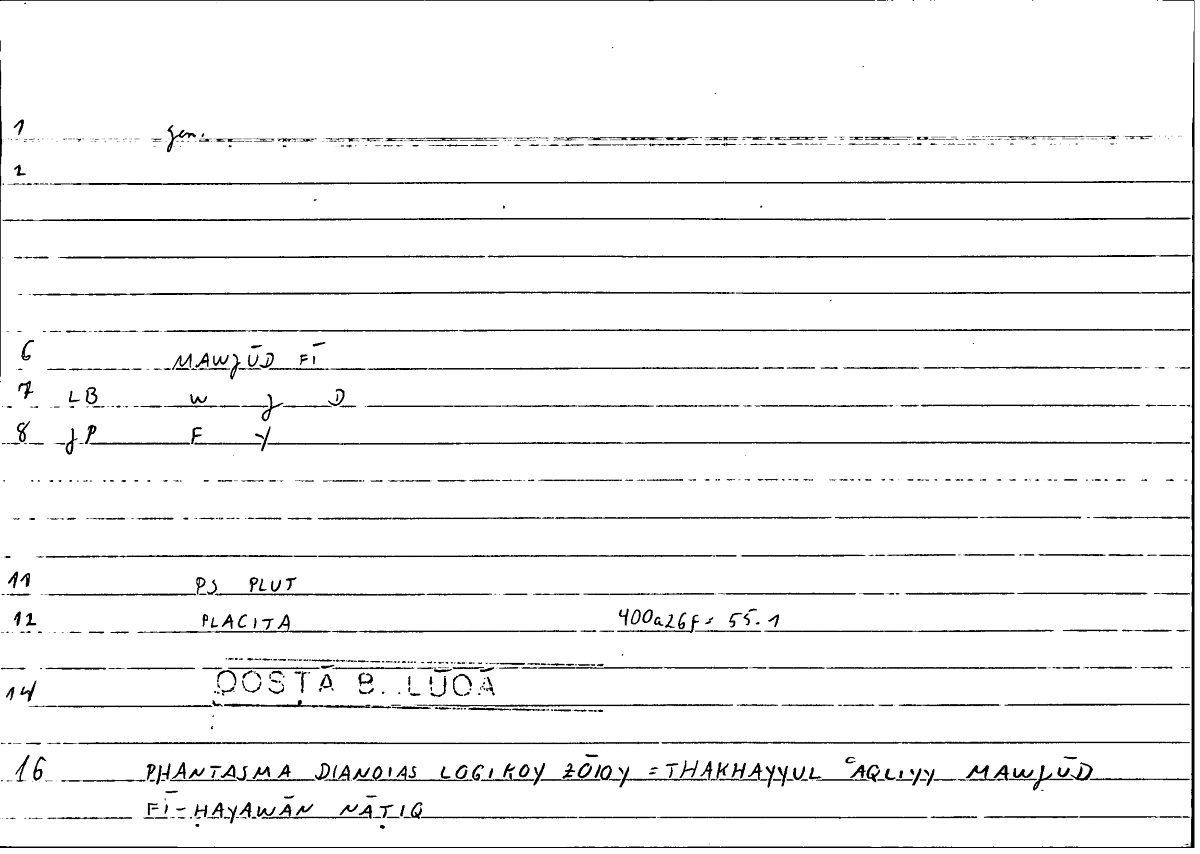 1 gen.
2
6 MAWJŪD FĪ
7 LB W J D
8 JP F Y
11 PS PLUT
12 PLACITA 400a26f = 55.1
14 QOSṬĀ B. LŪQĀ
16 PHANTASMA DIANOIAS LOGIKOY ZŌIOY = THAKHAYYUL ʿAQLIYY MAWJŪD
FĪ-ḤAYAWĀN NĀṬIQ